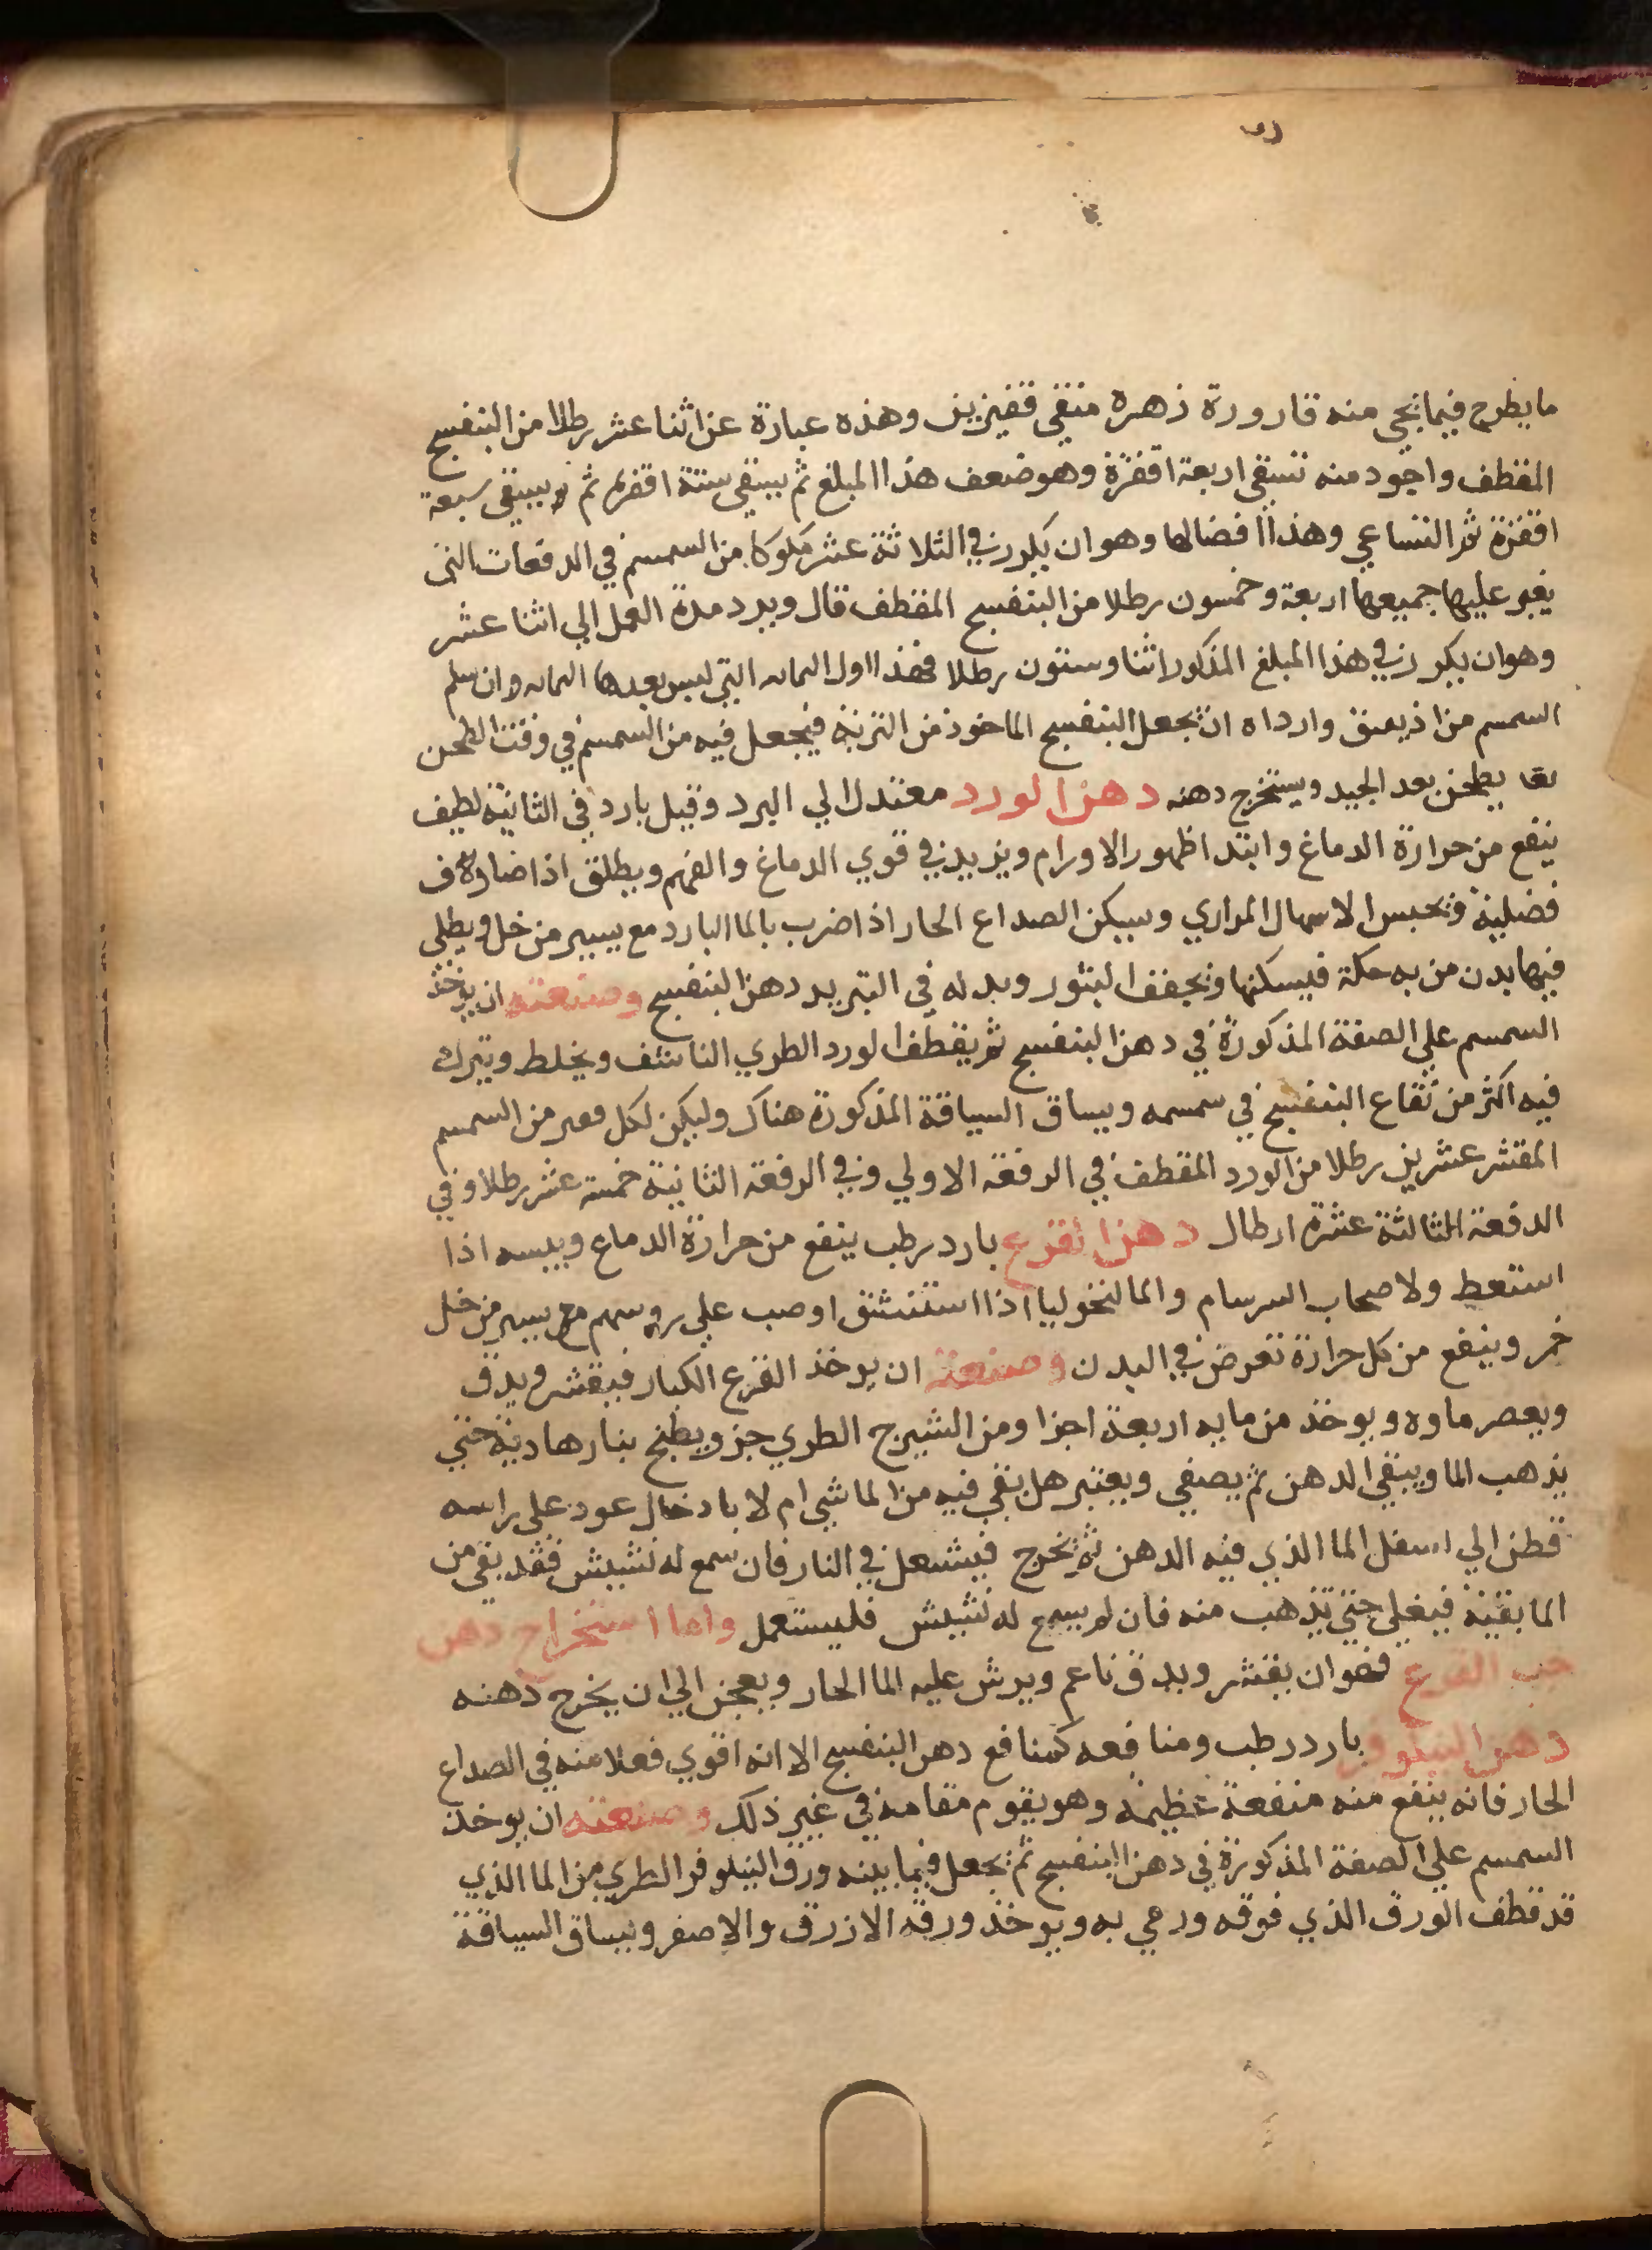 ما يطرح فيما يجي منه قارورة زهره منقي قفيزين وهذه عبارة عن اثنا عشر رطلا من البنفسج
المقطف واجود منه تسقي اربعة اقفزة وهو ضعف هذا المبلغ ثم يبقي ستة اقفزه ثم يسقي سبعة
اقفزة ثم التساعي وهذا افضالها وهو ان يكرر في الثلاثة عشر مكوكا من السمسم في الدفعات التي
يغبر عليها جميعها اربعة وخمسون رطلا من البنفسج المقطف قال ويرد مدة العمل الي اثنا عشر
وهو ان يكرر في هذا المبلغ المذكور اثنا وستون رطلا فهذا اول التي ليس بعدها وان سلم
السمسم من وارداه ان يجعل البنفسج الماخوذ من فيجعل فيه من السمسم في وقت الطحن
يطحن بعد الجيد ويستخرج دهنه دهن الورد معتدل الي البرد وقيل بارد في الثانية لطيف
ينفع من حرارة الدماغ وابتدا ظهور الاورام ويزيد في قوي الدماغ والفهم ويطلق اذا
فضلية ويحبس الاسهال المراري ويسكن الصداع الحار اذا ضرب بالما البارد مع يسير من خل ويطلي
فيها بدن من به حكة فيسكنها ويجفف البثور وبدله في التبريد دهن البنفسج وصنعته ان يوخذ
السمسم علي الصفة المذكورة في دهن البنفسج ثم يقطف الورد الطري الناشف ويخلط ويترك
فيه اكثر من نقاع البنفسج في سمسمه ويساق السياقة المذكورة هناك وليكن لكل من السمسم
المقشر عشرين رطلا من الورد المقطف في الدفعة الاولي وفي الدفعة الثانية خمسة عشر رطلا وفي
الدفعة الثالثة عشرة ارطال دهن القرع بارد رطب ينفع من حرارة الدماغ ويبسه اذا
استعط ولاصحاب السرسام والمالنخوليا اذا استنشق او صب علي روسهم مع يسير من خل
خمر وينفع من كل حرارة تعرض في البدن وصنعته ان يوخذ القرع الكبار فيقشر ويدق
ويعصر ماوه ويوخذ من مايه اربعة اجزا ومن الشيرج الطري جز ويطبخ بنار هادية حتي
يذهب الما ويبقي الدهن ثم يصفي ويعتبر هل بقي فيه من الما شي ام لا بادخال عود علي راسه
قطن الي اسفل الما الذي فيه الدهن ثم يخرج فيشعل في النار فان سمع له نشيش فقد بقي من
الما بقية فيغلي حتي تذهب منه فان لم يسمع له نشيش فليستعمل واما استخراج دهن
حب القرع فهو ان يقشر ويدق ناعم ويرش عليه الما الحار ويعجن الي ان يخرج دهنه
دهن النيلوفر بارد رطب ومنافعه كمنافع دهن البنفسج الا انه اقوي فعلا منه في الصداع
الحار فانه ينفع منه منفعة عظيمة وهو يقوم مقامه في غير ذلك وصنعته ان يوخذ
السمسم علي الصفة المذكورة في دهن البنفسج ثم يجعل فيما بينه ورق النيلوفر الطري من الما الذي
قد قطف الورق الذي فوقه ورمي به ويوخذ ورقه الازرق والاصفر ويساق السياقة